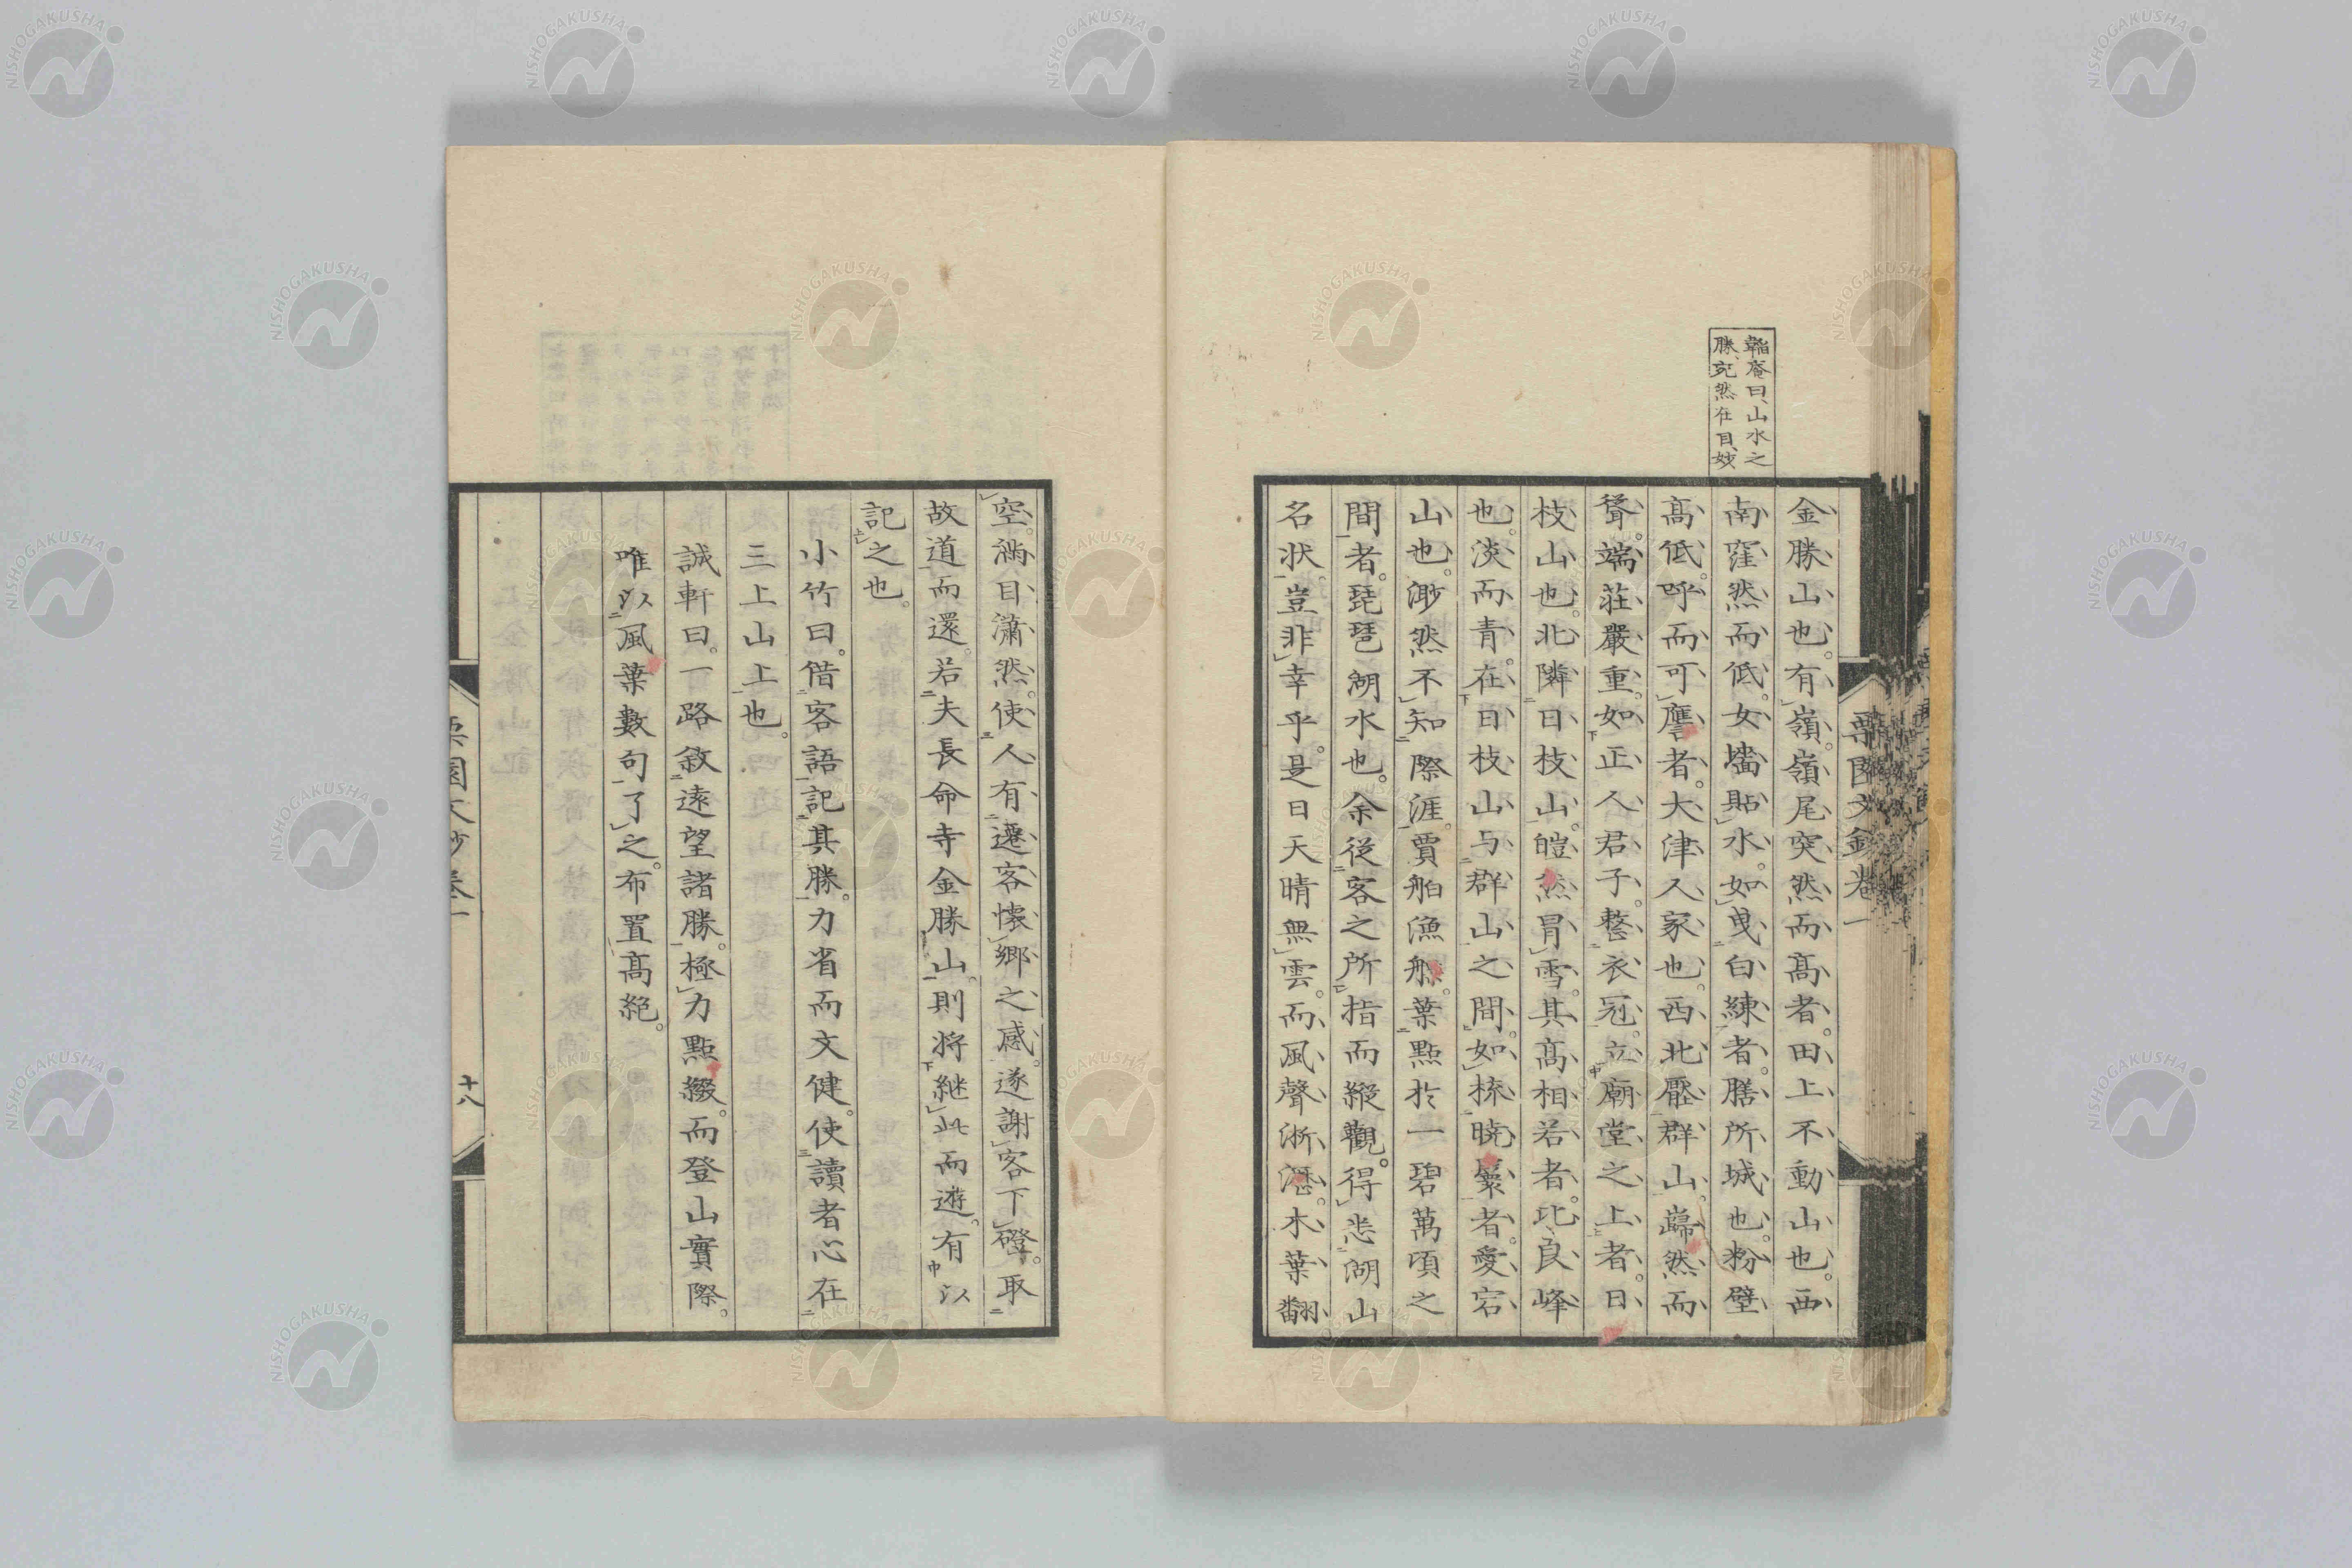 韜庵曰、山水之
勝、宛然在目、妙
金勝山也。有嶺。嶺尾突然而高者。田上不動山也。西
南窪然而低。女墻貼水。如曳白練者。膳所城也。粉壁
高低。呼而可譍者。大津人家也。西北壓群山。巋然而
聳。端莊嚴重。如正人君子。整衣冠。立廟堂之上者。日
枝山也。北隣日枝山。皚然冐雪。其高相若者。比良峰
也。淡而青。在日枝山与群山之間。如梳曉鬟者。愛宕
山也。渺然不知際涯。賈舶漁艇。葉點於一碧萬頃之
間者。琵琶湖水也。余從客之所指而縱觀。得悉湖山
名狀。豈非幸乎。是日天晴無雲。而風聲淅瀝。木葉翻
栗園文鈔卷一
空。滿目瀟然。使人有遷客懷鄉之感。遂謝客下磴。取
故道而還。若夫長命寺金勝山。則將継此而遊。有以
記之也。
小竹曰。借客語記其勝。力省而文健。使讀者心在
三上山上也。
誠軒曰。一路敘遠望諸勝。極力點綴。而登山實際。
唯以風葉數句了之。布置高絕。
栗園文鈔卷一
十八
NISHOGAKUSHA